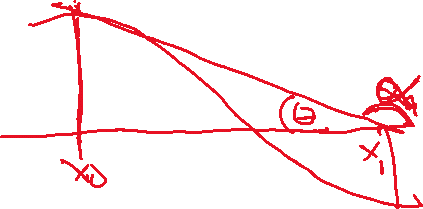 θ
x₀
x₁